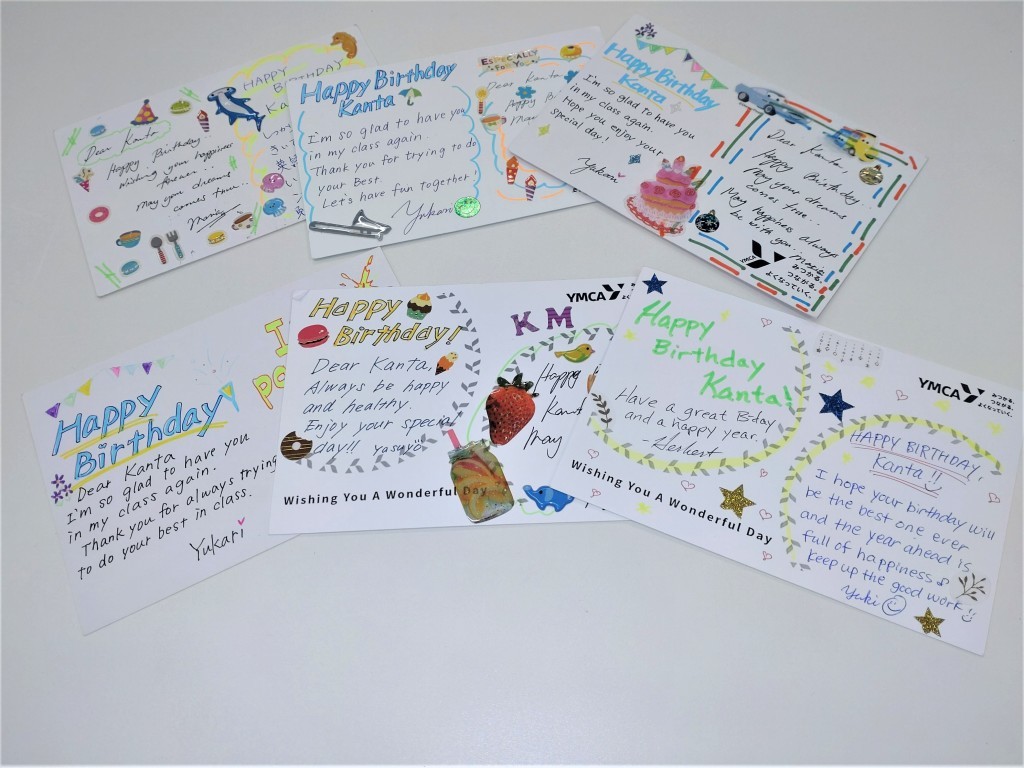 HAPPY
BIRTHDAY
Dear Kanta
Happy Birthday!
Wishing your happiness
forever!
May your dreams
comes true...
Happy Birthday
Kanta
I'm so glad to have you
in my class again.
Thank you for trying to do
your Best.
Let's have fun together!
Yukari
ESPECIALLY
For You
Dear Kanta
Happy Birthday
Kanta
I'm so glad to have you
in my class again.
Hope you enjoy your
special day!
Yukari
Dear Kanta,
Happy Birthday.
May your dreams
comes true.
May happiness always
be with you.
YMCA
みつかる。
つながる。
よくなっていく。
Happy
Birthday
Dear Kanta
I'm so glad to have you
in my class again.
Thank you for always trying
to do your best in class.
Yukari
Happy
Birthday!
Dear Kanta,
Always be happy
and healthy.
Enjoy your special
day!! Yasuyo
Wishing You A Wonderful Day
YMCA
KM
Happy
Kant
may
Happy
Birthday
Kanta!
Have a great B-day
and a happy year.
- Herbert
Wishing You A Wonderful Day
YMCA
みつかる。
つながる。
よくなっていく。
HAPPY BIRTHDAY,
Kanta!!
I hope your birthday will
be the best one ever
and the year ahead is
full of happiness
Keep up the good work!!
Yuki